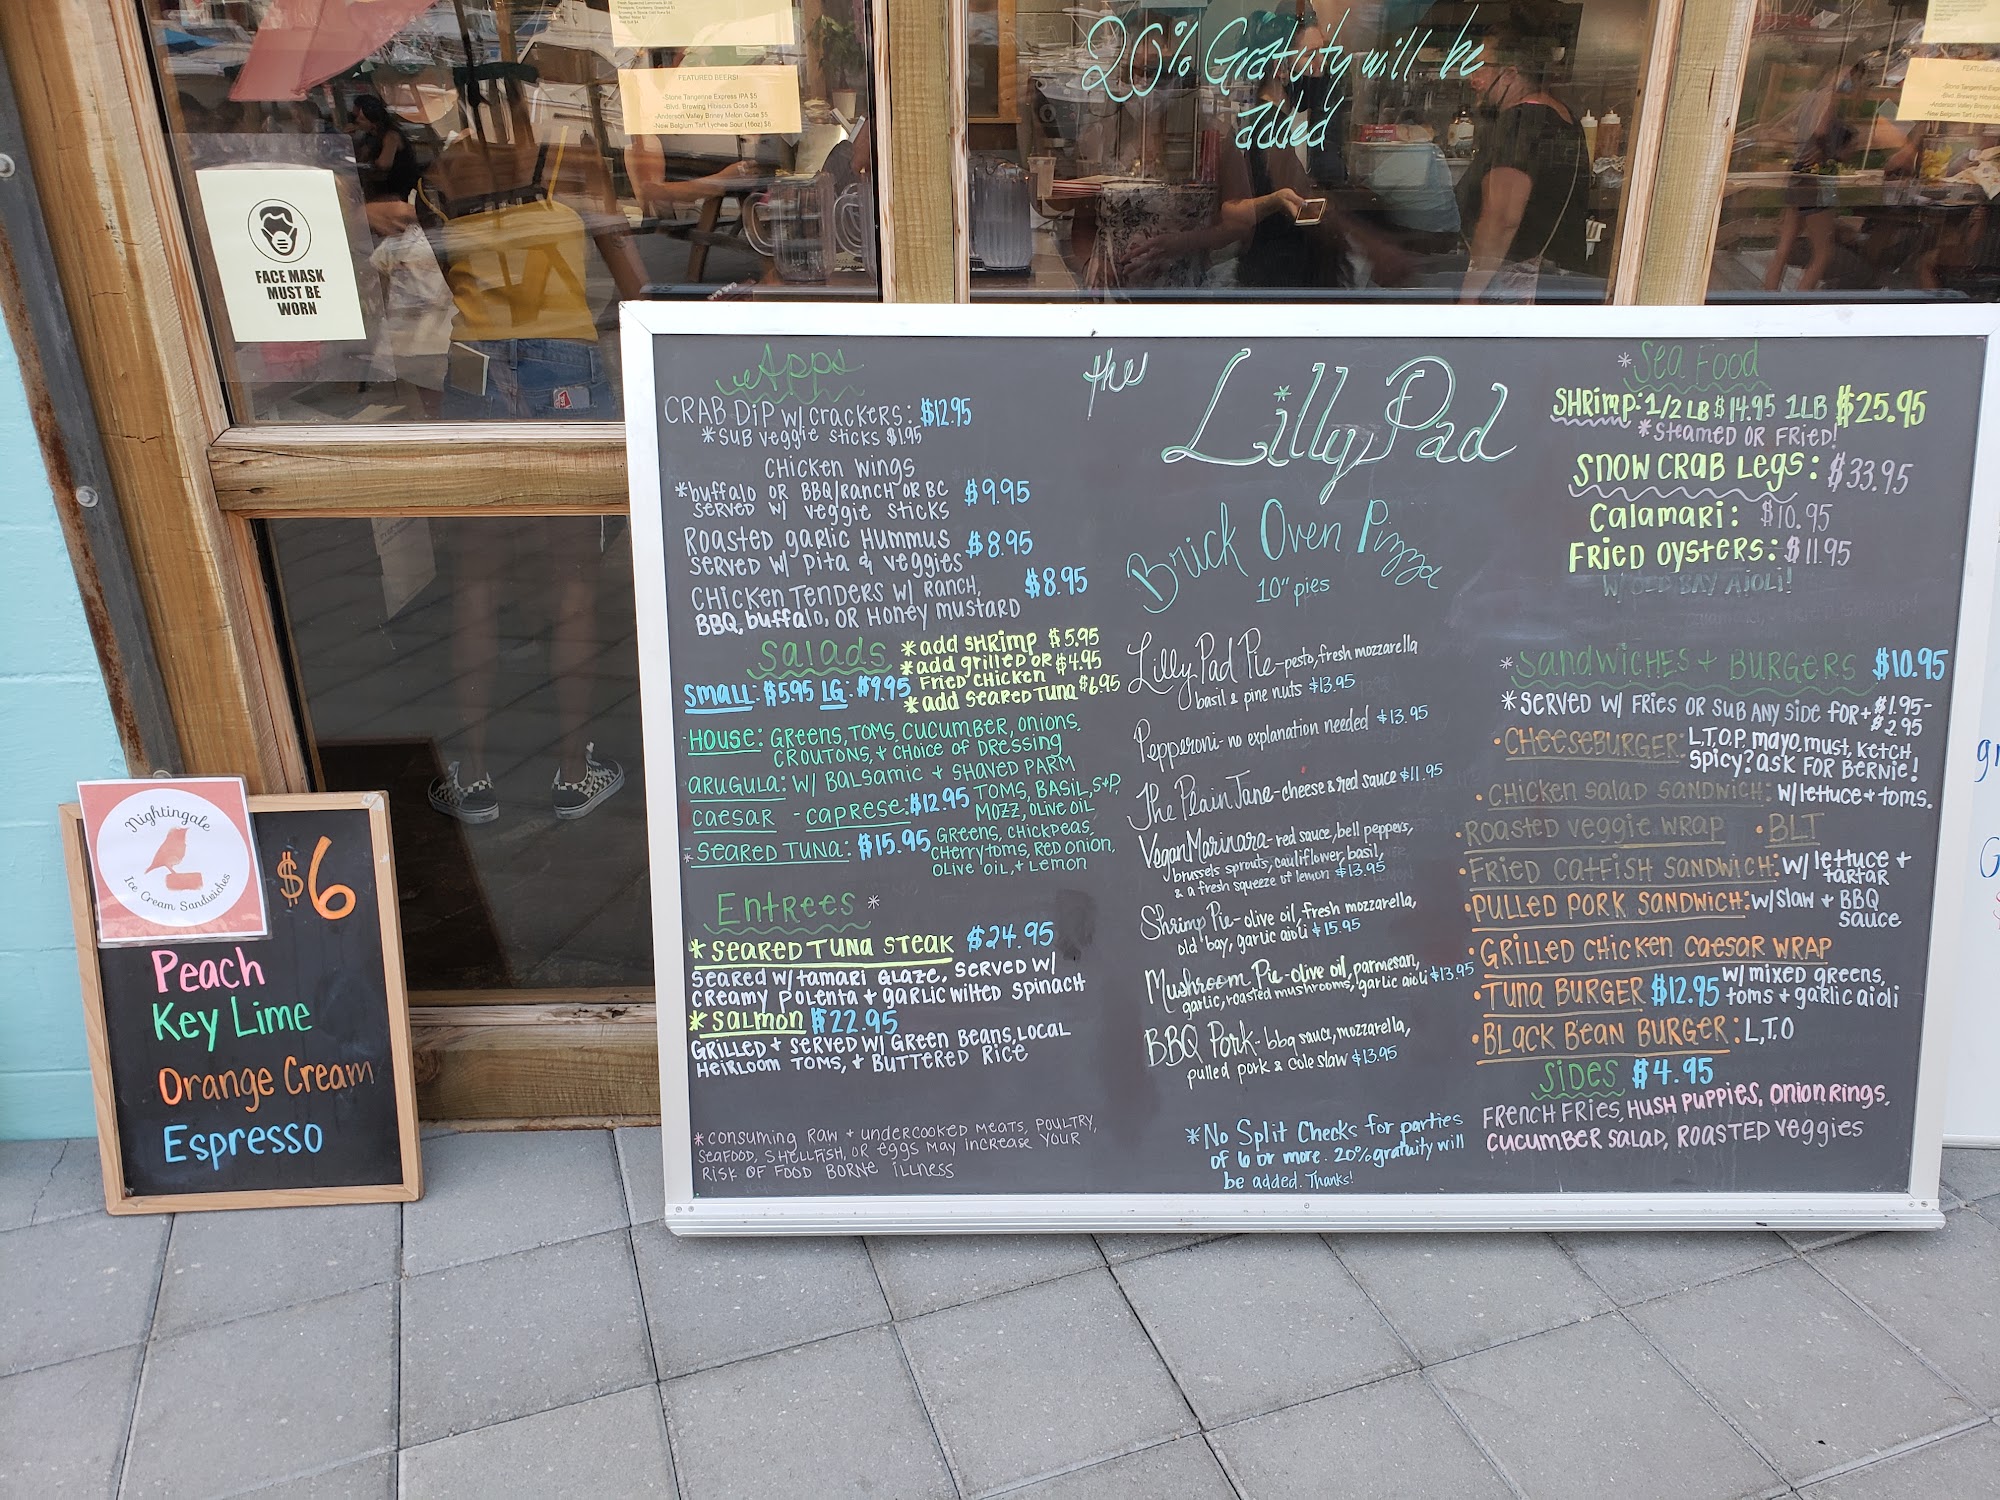 FEATURED BEERS!
-Stone Tangerine Express IPA $5
-Blvd. Brewing Hibiscus Gose $5
-Anderson Valley Briney Melon Gose $5
-New Belgium Tart Lychee Sour (16oz) $6
20% Gratuity will be
added
FACE MASK
MUST BE
WORN
Nightingale
Ice Cream Sandwiches
$6
Peach
Key Lime
Orange Cream
Espresso
Apps
CRAB DIP W/ CRACKERS: $12.95
*SUB veggie sticks $1.95
CHICKEN WINGS
*buffalo OR BBQ/RANCH OR BC $9.95
SERVED W/ veggie sticks
ROASTED garlic HUMMUS $8.95
SERVED W/ pita & veggies
CHICKEN TENDERS W/ RANCH, $8.95
BBQ, buffalo, OR HONEY MUSTARD
Salads
*add SHRIMP $5.95
*add grilled OR $4.95
FRIED CHICKEN
*add SEARED TUNA $6.95
SMALL: $5.95 LG: $9.95
-HOUSE: GREENS, TOMS, CUCUMBER, ONIONS,
CROUTONS, + CHOICE OF DRESSING
-ARUGULA: W/ BALSAMIC + SHAVED PARM
CAESAR -CAPRESE: $12.95 TOMS, BASIL, S+P,
MOZZ, OLIVE OIL
*-SEARED TUNA: $15.95 GREENS, CHICKPEAS,
CHERRY TOMS, RED ONION,
OLIVE OIL, + LEMON
Entrees *
*SEARED TUNA STEAK $24.95
SEARED W/ TAMARI GLAZE, SERVED W/
CREAMY POLENTA + GARLIC WILTED SPINACH
*SALMON $22.95
GRILLED + SERVED W/ GREEN BEANS, LOCAL
HEIRLOOM TOMS, + BUTTERED RICE
*CONSUMING RAW + UNDERCOOKED MEATS, POULTRY,
SEAFOOD, SHELLFISH, OR EGGS MAY INCREASE YOUR
RISK OF FOOD BORNE ILLNESS
the Lilly Pad
Brick Oven Pizza
10" pies
Lilly Pad Pie-pesto, fresh mozzarella
basil & pine nuts $13.95
Pepperoni- no explanation needed $13.95
The Plain Jane-cheese & red sauce $11.95
Vegan Marinara-red sauce, bell peppers,
brussels sprouts, cauliflower, basil,
& a fresh squeeze of lemon $13.95
Shrimp Pie-olive oil, fresh mozzarella,
old bay, garlic aioli $15.95
Mushroom Pie-olive oil, parmesan,
garlic, roasted mushrooms, garlic aioli $13.95
BBQ Pork- bbq sauce, mozzarella,
pulled pork & cole slaw $13.95
*No Split Checks for parties
of 6 or more. 20% gratuity will
be added. Thanks!
*Sea Food
SHRIMP: 1/2 LB $14.95 1LB $25.95
*STEAMED OR FRIED!
SNOW CRAB LEGS: $33.95
CALAMARI: $10.95
FRIED OYSTERS: $11.95
W/ OLD BAY AIOLI!
*SANDWICHES + BURGERS $10.95
*SERVED W/ FRIES OR SUB ANY SIDE FOR +$1.95-
$2.95
•CHEESEBURGER: L.T.O.P. mayo, must, ketch,
spicy? ask for Bernie!
•CHICKEN SALAD SANDWICH: W/ lettuce + toms.
•ROASTED VEGGIE WRAP •BLT
•FRIED CATFISH SANDWICH: W/ lettuce +
tartar
•PULLED PORK SANDWICH: W/ slaw + BBQ
sauce
•GRILLED CHICKEN CAESAR WRAP
•TUNA BURGER $12.95 W/ mixed greens,
toms + garlic aioli
•BLACK BEAN BURGER: L,T,O
SIDES $4.95
FRENCH FRIES, HUSH PUPPIES, ONION RINGS,
CUCUMBER SALAD, ROASTED VEGGIES